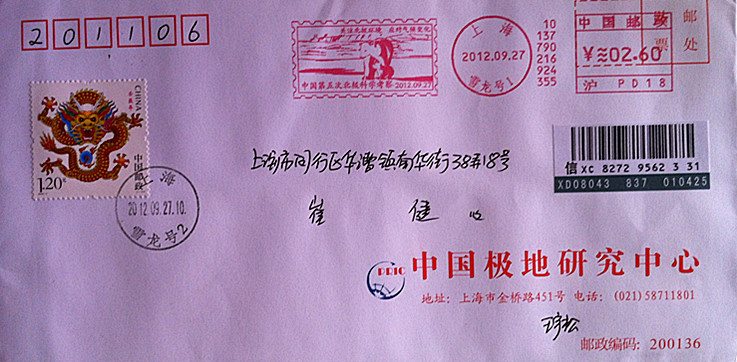 201106
关注北极环境 应对气候变化
中国第五次北极科学考察 2012.09.27
上海
2012.09.27
雪龙号1
10
137
790
216
924
355
中国邮政
¥≈02.60
沪 PD18
邮
票 处
CHINA
壬辰年
中国邮政
1.20元
上海
2012.09.27.10.
雪龙号2
上海市闵行区华漕镇南华街38弄18号
崔 健 收
信 XC 8272 9562 3 31
XD08043 837 010425
PRIC 中国极地研究中心
地址: 上海市金桥路451号 电话: (021)58711801
邮政编码: 200136